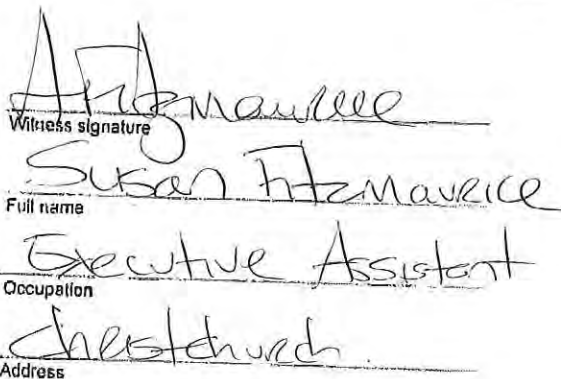 Fitzmaurice
Witness signature
Susan Fitzmaurice
Full name
Executive Assistant
Occupation
Christchurch.
Address